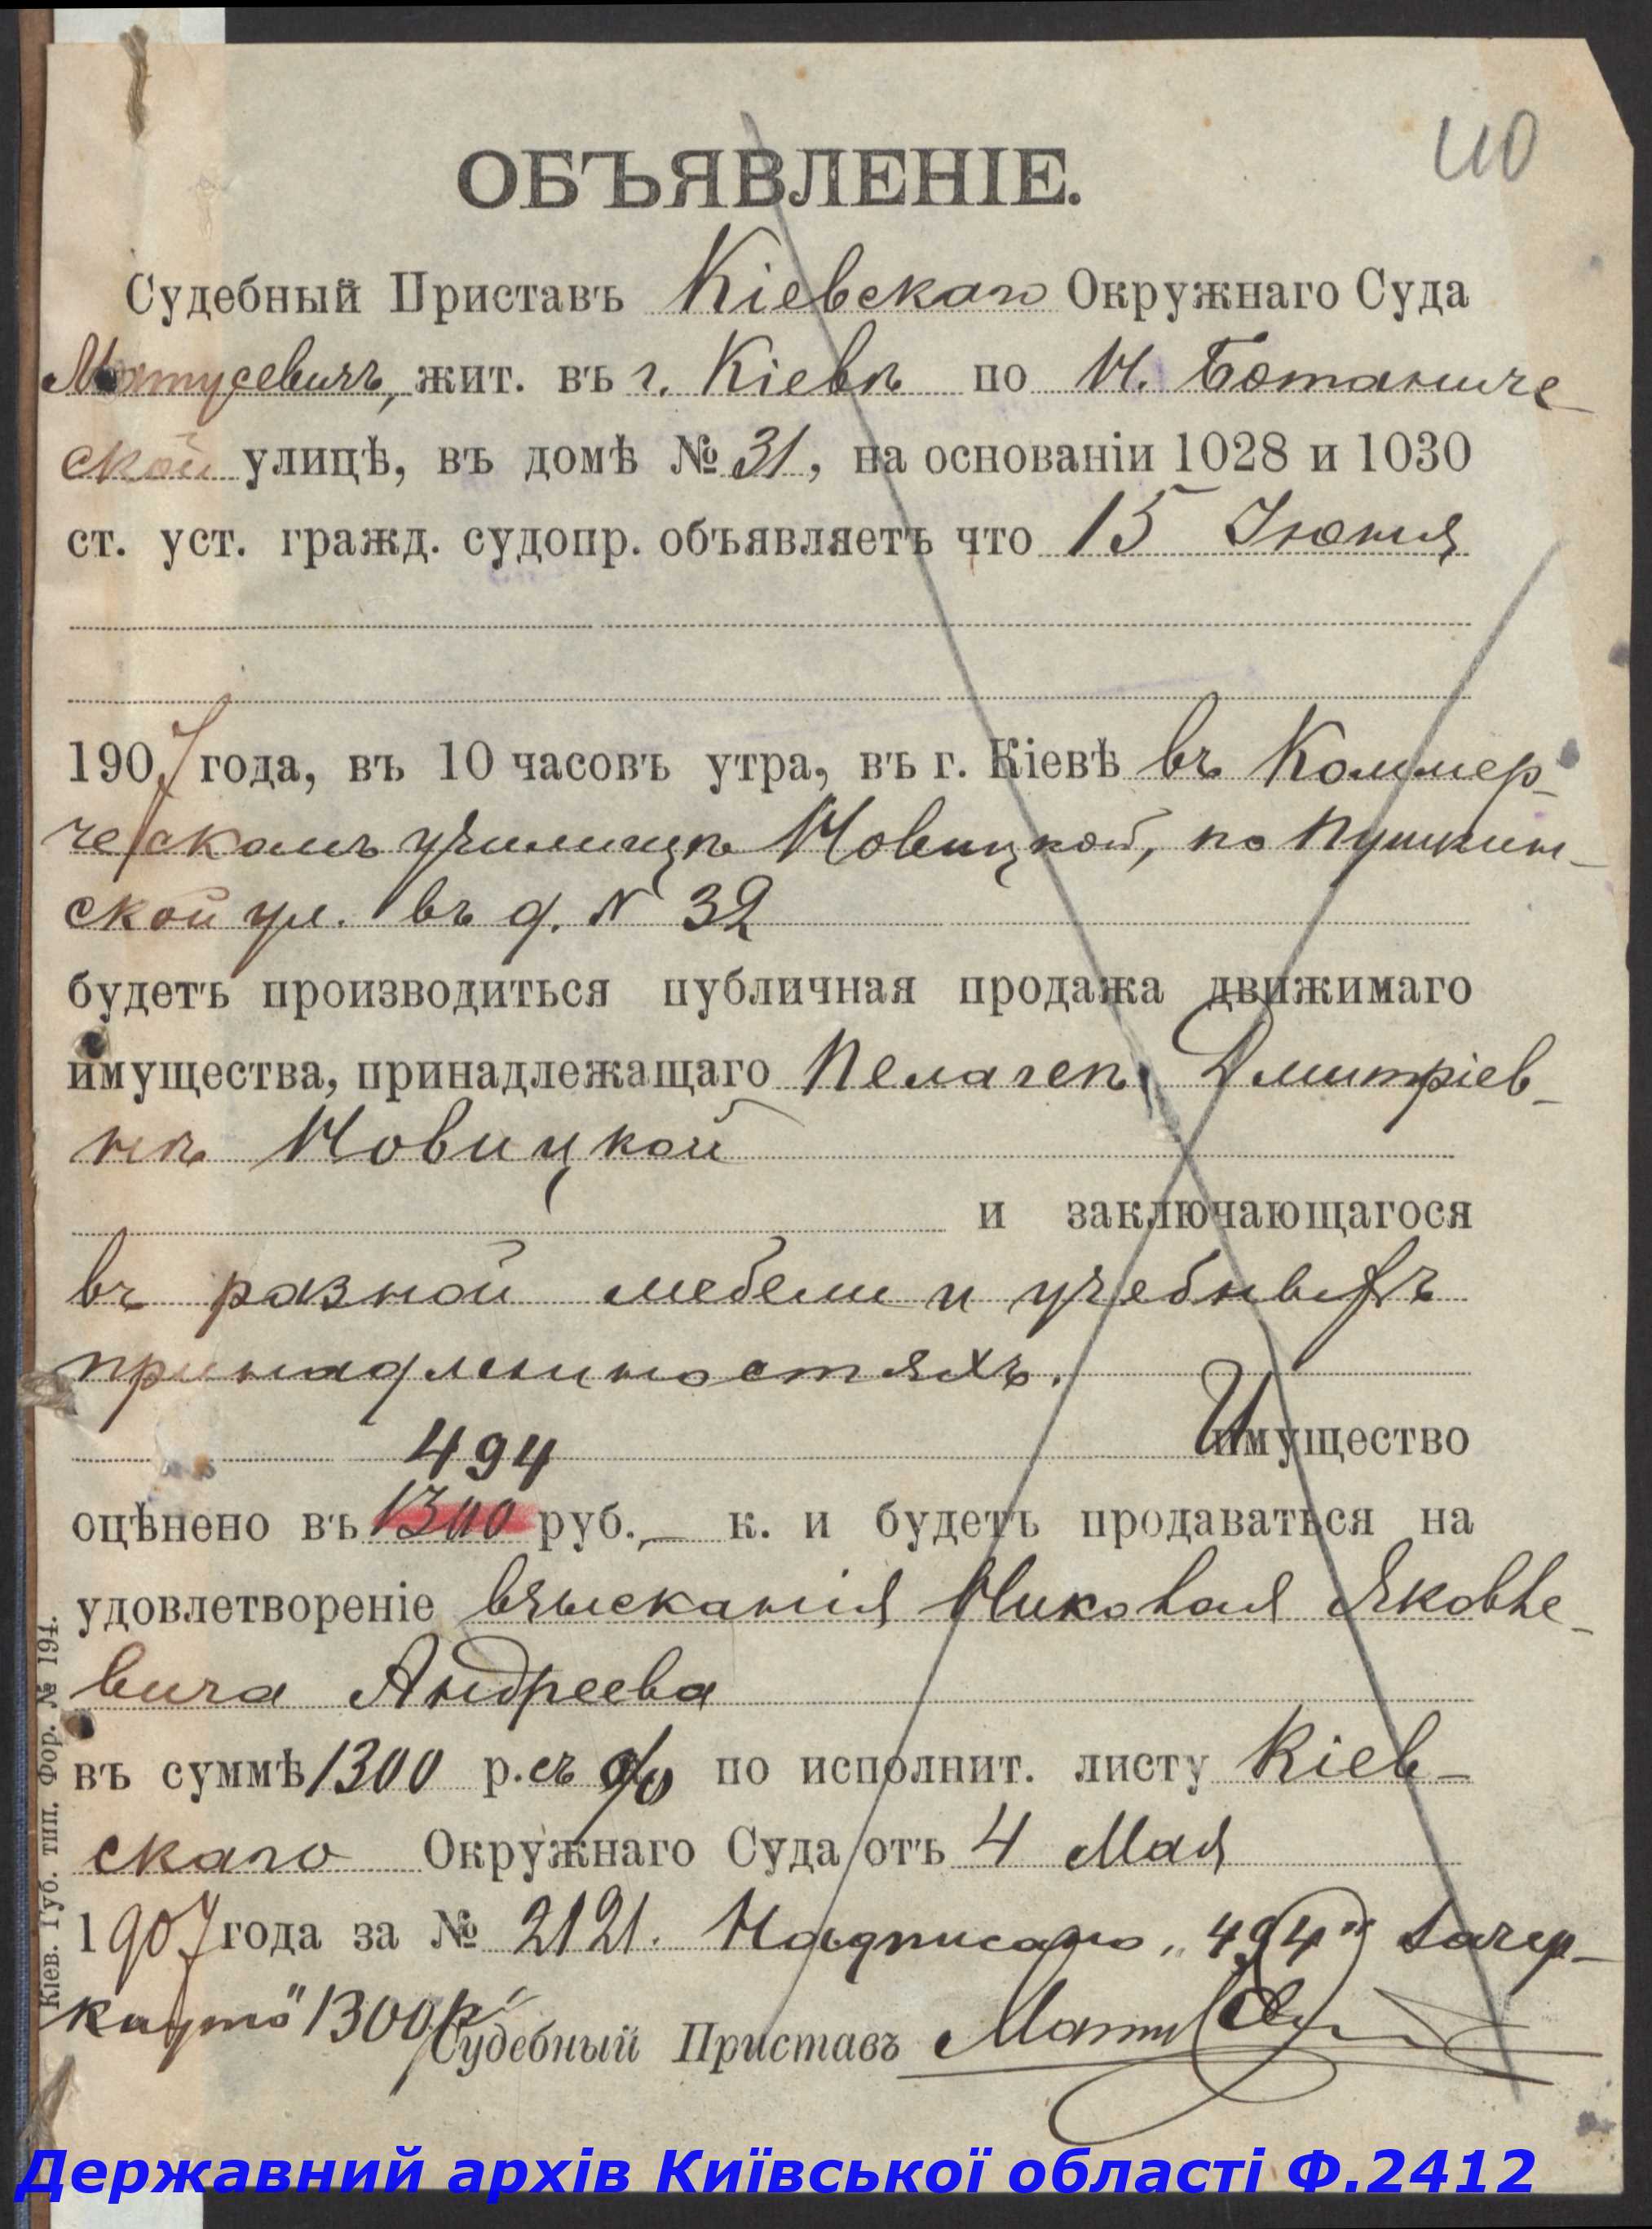 110
ОБЪЯВЛЕНІЕ.
Судебный Приставъ Кіевскаго Окружнаго Суда
Матусевичъ, жит. въ г. Кіевѣ по Н. Ботаниче-
ской улицѣ, въ домѣ № 31, на основаніи 1028 и 1030
ст. уст. гражд. судопр. объявляетъ что 15 Іюня
1907 года, въ 10 часовъ утра, въ г. Кіевѣ въ Коммер-
ческомъ училищѣ Новицкой, по Пушкин-
ской ул. въ д. № 32
будетъ производиться публичная продажа движимаго
имущества, принадлежащаго Пелагеѣ Дмитріев-
нѣ Новицкой
и заключающагося
въ разной мебели и учебныхъ
принадлежностяхъ.
494 Имущество
оцѣнено въ 1300 руб. — к. и будетъ продаваться на
удовлетвореніе взысканія Николая Яковле-
вича Андреева
въ суммѣ 1300 р. съ % по исполнит. листу Кіев-
скаго Окружнаго Суда отъ 4 Мая
1907 года за № 2121. Надписано „494" Зачер-
кнуто "1300 р."
Судебный Приставъ
Кіев. Губ. тип. Фор. № 194.
Державний архів Київської області Ф.2412